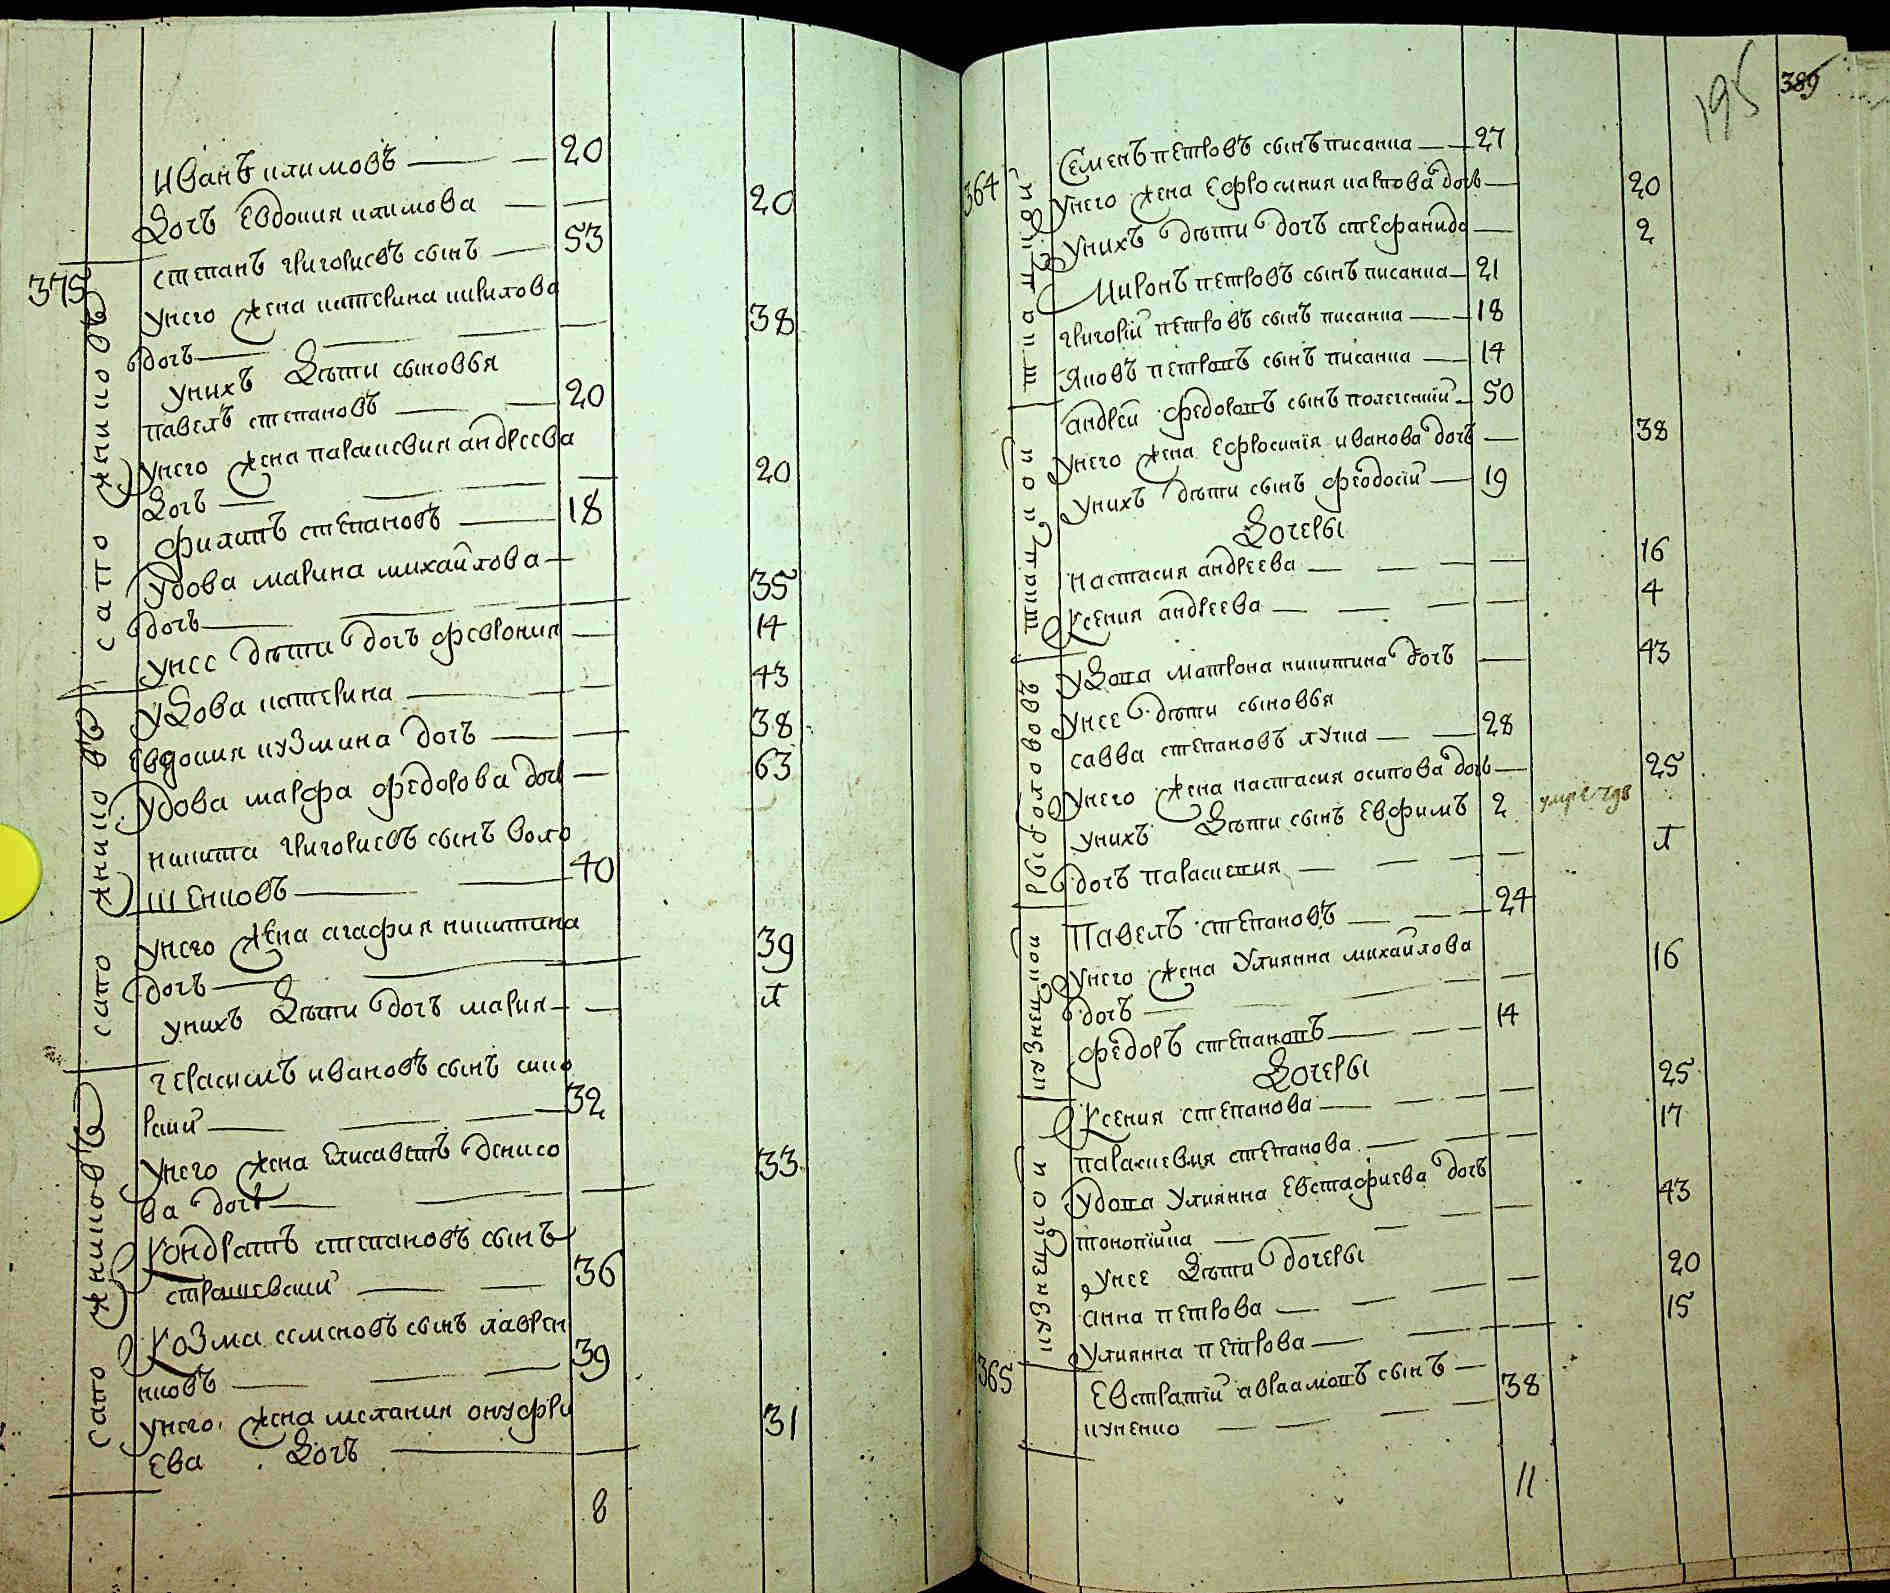 Иванъ климовъ 20
Дочъ Евдокия климова 20
375 степанъ григориевъ сынъ 53
унего жена катерина кирилова
дочъ 38
унихъ Дѣти сыновья
павелъ степановъ 20
унего жена параскевия андреева
Дочъ 20
филипъ степановъ 18
Удова марина михайлова
дочъ 35
унее дѣти дочъ феврония 14
сапожниковъ
уДова катерина 43
Евдокия кузмина дочъ 38
Удова марфа федорова дочъ 63
никита григориевъ сынъ воло
шенковъ 40
унего жена агафия никитина
дочъ 39
унихъ Дѣти дочъ мария
сапожниковъ
герасимъ ивановъ сынъ
32
унего жена Елисаветъ денисо
ва дочъ 33
Кондратъ степановъ сынъ
36
Козма семеновъ сынъ лаврен
ковъ 39
унего жена мелания онуфри
Ева Дочъ 31
сапожниковъ
8
195 389
364 Семенъ петровъ сынъ писанка 27
унего жена Ефросиния карпова дочъ 20
унихъ дѣти дочъ стефанида 2
Миронъ петровъ сынъ писанка 21
григорій петровъ сынъ писанка 18
Яковъ петровъ сынъ писанка 14
андрей федоровъ сынъ 50
унего жена Ефросинія иванова дочъ 38
унихъ дѣти сынъ феодосій 19
Дочеры
настасия андреева 16
Ксения андреева 4
ткацкой
уДова матрона никитина дочъ 43
унее дѣти сыновья
савва степановъ лучка 28
унего жена настасия осипова дочъ 25
унихъ Дѣти сынъ Евфимъ 2
дочъ параскевия
рыболововъ
Павелъ степановъ 24
унего жена Улиянна михайлова
дочъ 16
федоръ степановъ 14
Дочеры
кузнецкой
Ксения степанова 25
параскевия степанова 17
Удова Улиянна Евстафиева дочъ
43
унее Дѣти дочеры
анна петрова 20
улиянна петрова 15
кузнецкой
365 Евстратій авраамовъ сынъ
куценко 38
11